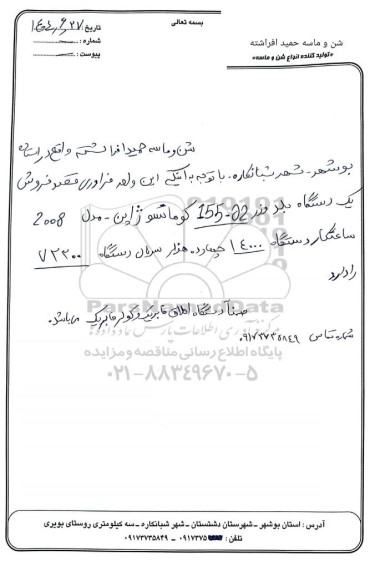 بسمه تعالی
شن و ماسه حمید افراشته
«تولید کننده انواع شن و ماسه»
تاریخ: ۱۴۰۴/۶/۲۷
شماره:
پیوست:
شن و ماسه حمید افراشته واقع در استان
بوشهر - شهر شبانکاره. با توجه به اینکه این واحد فرآوری قصد فروش
یک دستگاه بلدوزر 155-02 کوماتسو ژاپن - مدل 2008
ساعتکار دستگاه ۱۴۰۰۰ چهارده هزار سریال دستگاه ۷۳۳۰۰
را دارد
ضمناً دستگاه اطاق فابریک و کولر فابریک می‌باشد.
شماره تماس ۰۹۱۷۳۷۳۵۸۴۹
ParsNamadData
مرکز فرآوری اطلاعات پارس نماد داده‌ها
پایگاه اطلاع رسانی مناقصه و مزایده
۰۲۱-۸۸۳۴۹۶۷۰-۵
آدرس : استان بوشهر - شهرستان دشتستان - شهر شبانکاره - سه کیلومتری روستای بویری
تلفن : ۰۹۱۷۳۷۵ - ۰۹۱۷۳۷۳۵۸۴۹